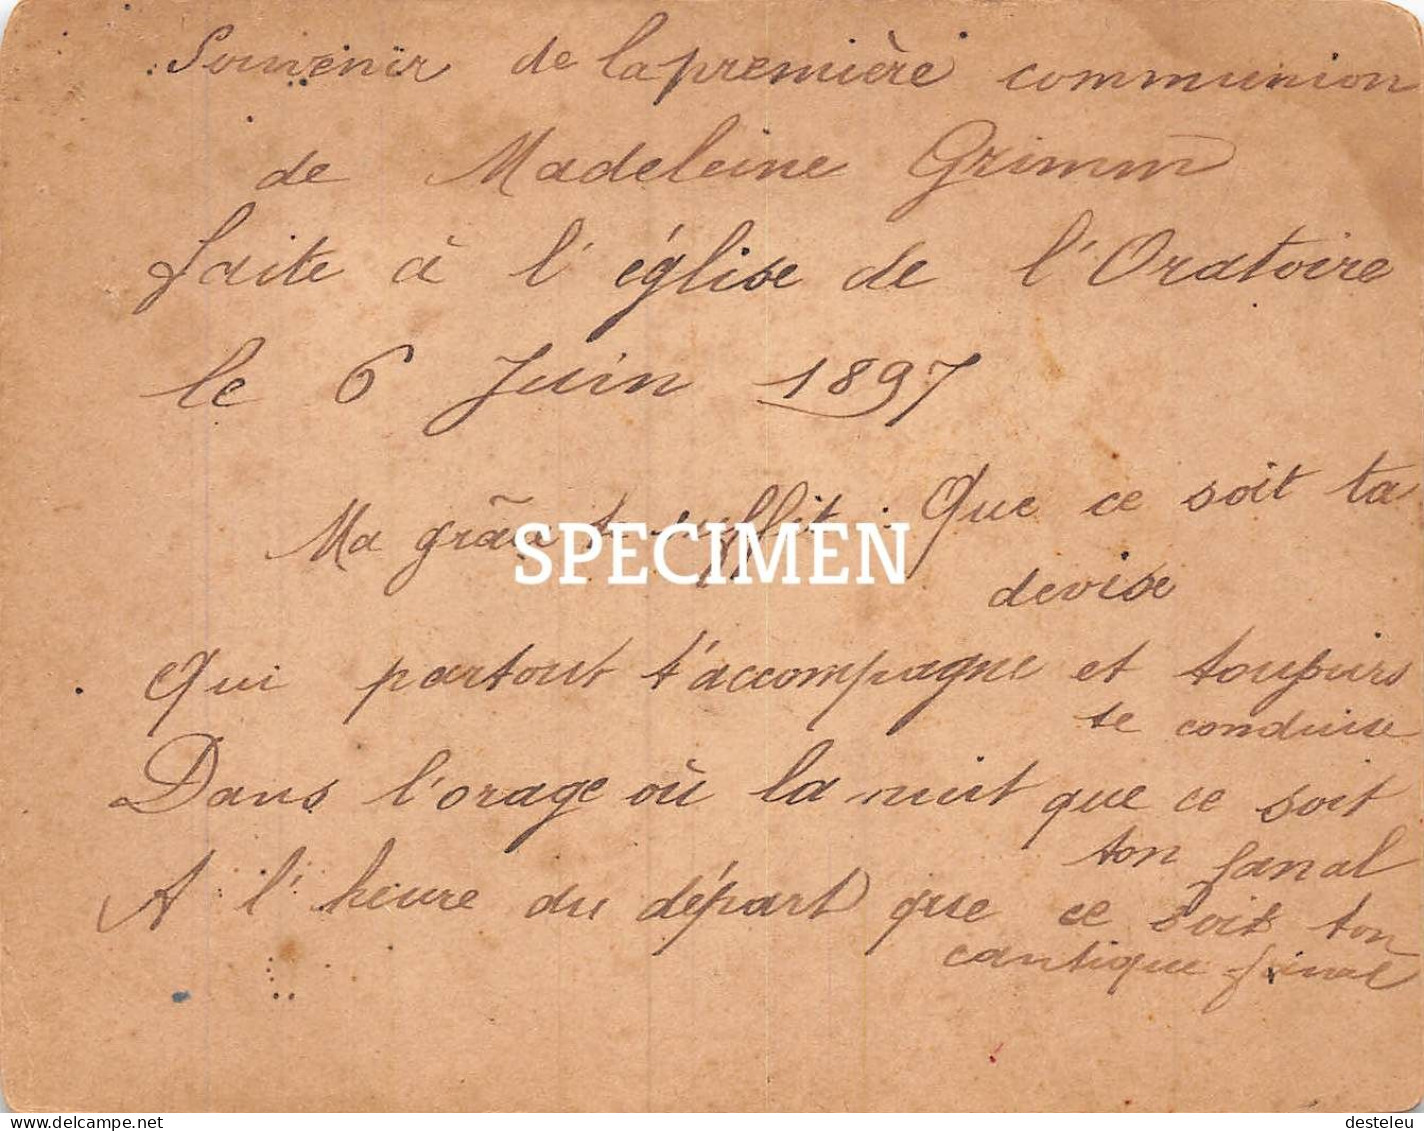 Souvenir de la première communion
de Madeleine Grimm
faite à l'église de l'Oratoire
le 6 Juin 1897
Ma grâce te suffit. Que ce soit ta
devise
SPECIMEN
Qui partout t'accompagne et toujours
te conduise
Dans l'orage où la nuit que ce soit
ton fanal
A l'heure du départ que ce soit ton
cantique final
delcampe.net
desteleu